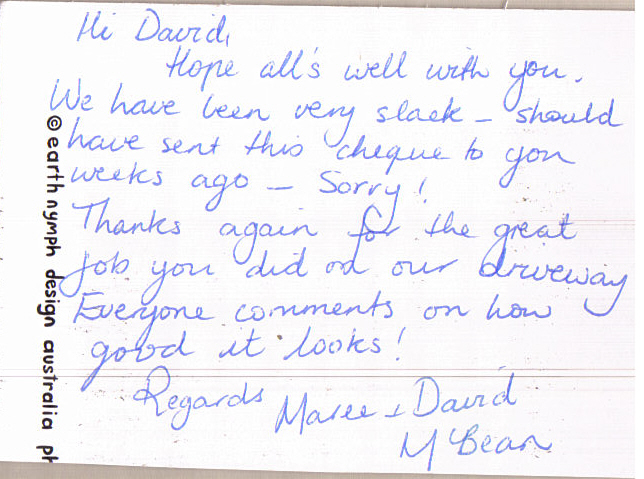 Hi David,
Hope all's well with you.
We have been very slack - should
have sent this cheque to you
weeks ago - Sorry!
Thanks again for the great
job you did on our driveway
Everyone comments on how
good it looks!
Regards Maree + David
McBean
© earth nymph design australia ph